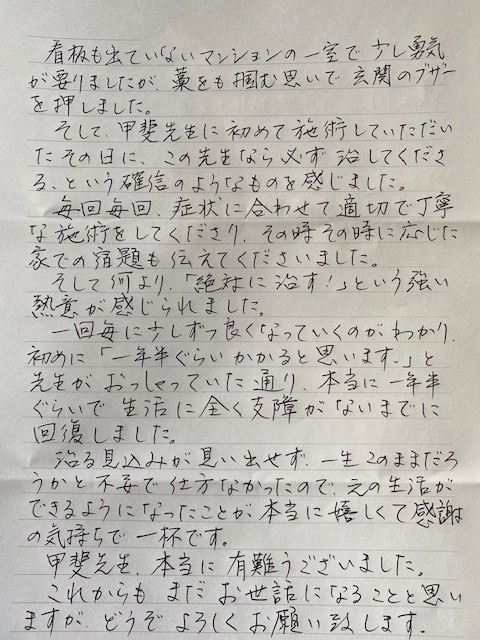 看板も出ていないマンションの一室で少し勇気
が要りましたが、藁をも掴む思いで玄関のブザー
を押しました。
そして、甲斐先生に初めて施術していただい
たその日に、この先生なら必ず治してくださ
る、という確信のようなものを感じました。
毎回毎回、症状に合わせて適切で丁寧
な施術をしてくださり、その時その時に応じた
家での宿題も伝えてくださいました。
そして何より、「絶対に治す!」という強い
熱意が感じられました。
一回毎に少しずつ良くなっていくのがわかり、
初めに「一年半ぐらいかかると思います。」と
先生がおっしゃっていた通り、本当に一年半
ぐらいで生活に全く支障がないまでに
回復しました。
治る見込みが見い出せず、一生このままだろ
うかと不安で仕方なかったので、元の生活が
できるようになったことが、本当に嬉しくて感謝
の気持ちで一杯です。
甲斐先生、本当に有難うございました。
これからもまだお世話になることと思い
ますが、どうぞよろしくお願い致します。